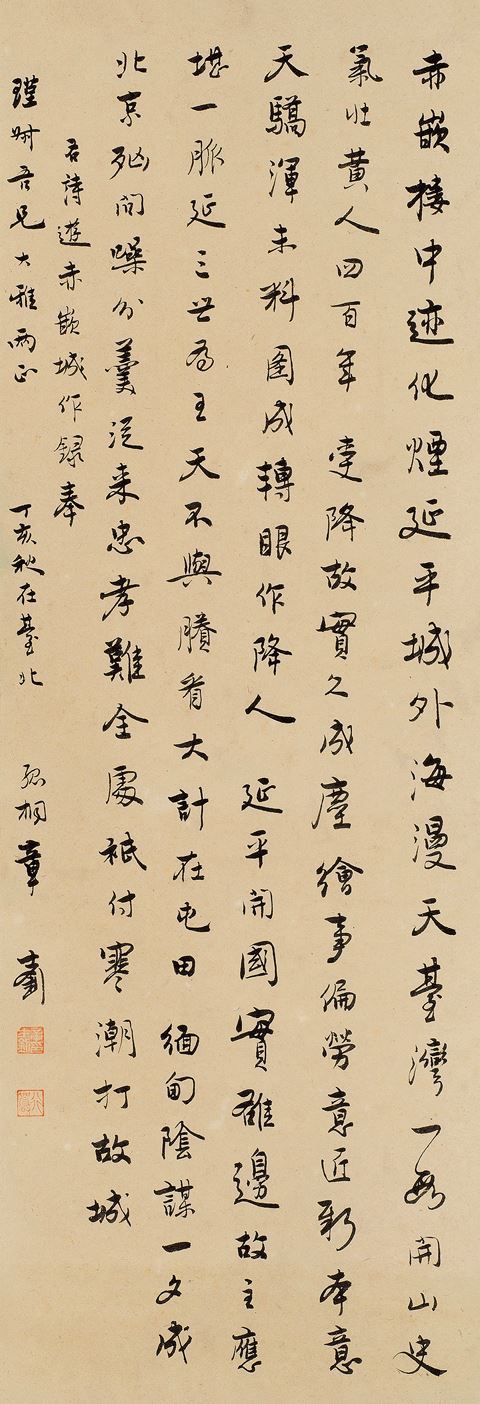 赤嵌樓中迹化煙延平城外海漫天臺灣一段開山史
氣壯黃人四百年 受降故實久成塵繪事偏勞意匠新本意
天驕渾未料圖成轉眼作降人 延平開國實雄邊故主應
堪一脈延三世為王天不與賸看大計在屯田 緬甸陰謀一夕成
北京死問躁分羹從來忠孝難全處祇付寒潮打故城
右詩遊赤嵌城作錄奉
瑾叔吾兄大雅兩正 丁亥秋在臺北 孤桐章士釗